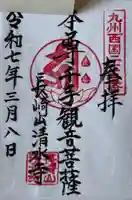 九州西国二
奉拝
本尊千手観音菩薩
長崎山清水寺
令和七年三月八日